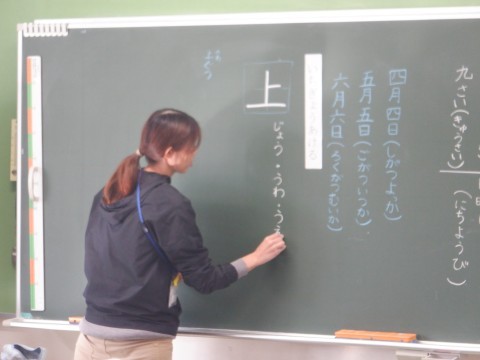 九さい(きゅうさい)
(にちようび)
四月四日(しがつよっか)
五月五日(ごがついつか)
六月六日(ろくがつむいか)
上
じょう・うわ・うえ